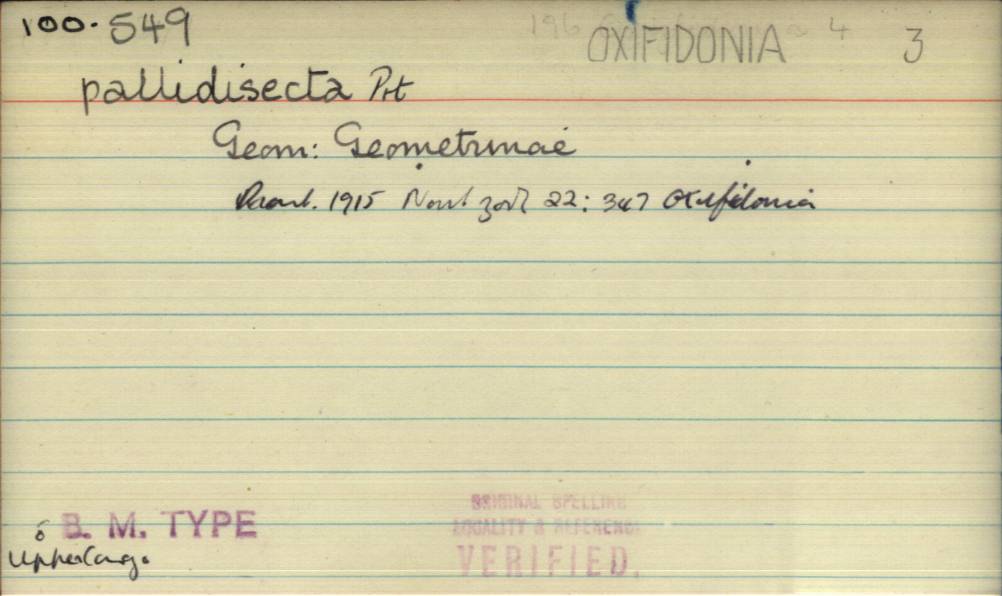 100.549
OXIFIDONIA 3
pallidisecta Prt
Geom: Geometrinae
Prout. 1915 Novit zool 22: 347 Oxifidonia
B. M. TYPE
Upper Congo
ORIGINAL SPELLING
LOCALITY & REFERENCE
VERIFIED.